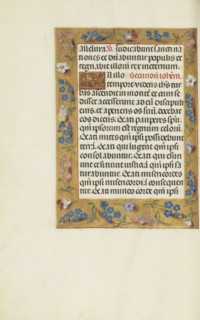 alleluia. V. Iudicabunt sancti na
tiones et dn̄abuntur populis et
regnabit illorū rex in eternum.
In illo Secundū Iohēm.
tempore videns ihs tur
bas ascendit in montē et cum se
disset accesserunt ad eū discipuli
eius et aperiens os suū docebat
eos dicens. Beati pauperes spū.
qm̄ ipsorum est regnum celorū.
Beati mites qm̄ ipsi possidebunt
terrā. Beati qui lugent qm̄ ipsi
consolabuntur. Beati qui esuri
unt et sitiunt iusticiā qm̄ ipsi sa
turabuntur. Beati misericordes
qm̄ ipsi misericordiā consequen
tur. Beati mundo corde qm̄ ipsi